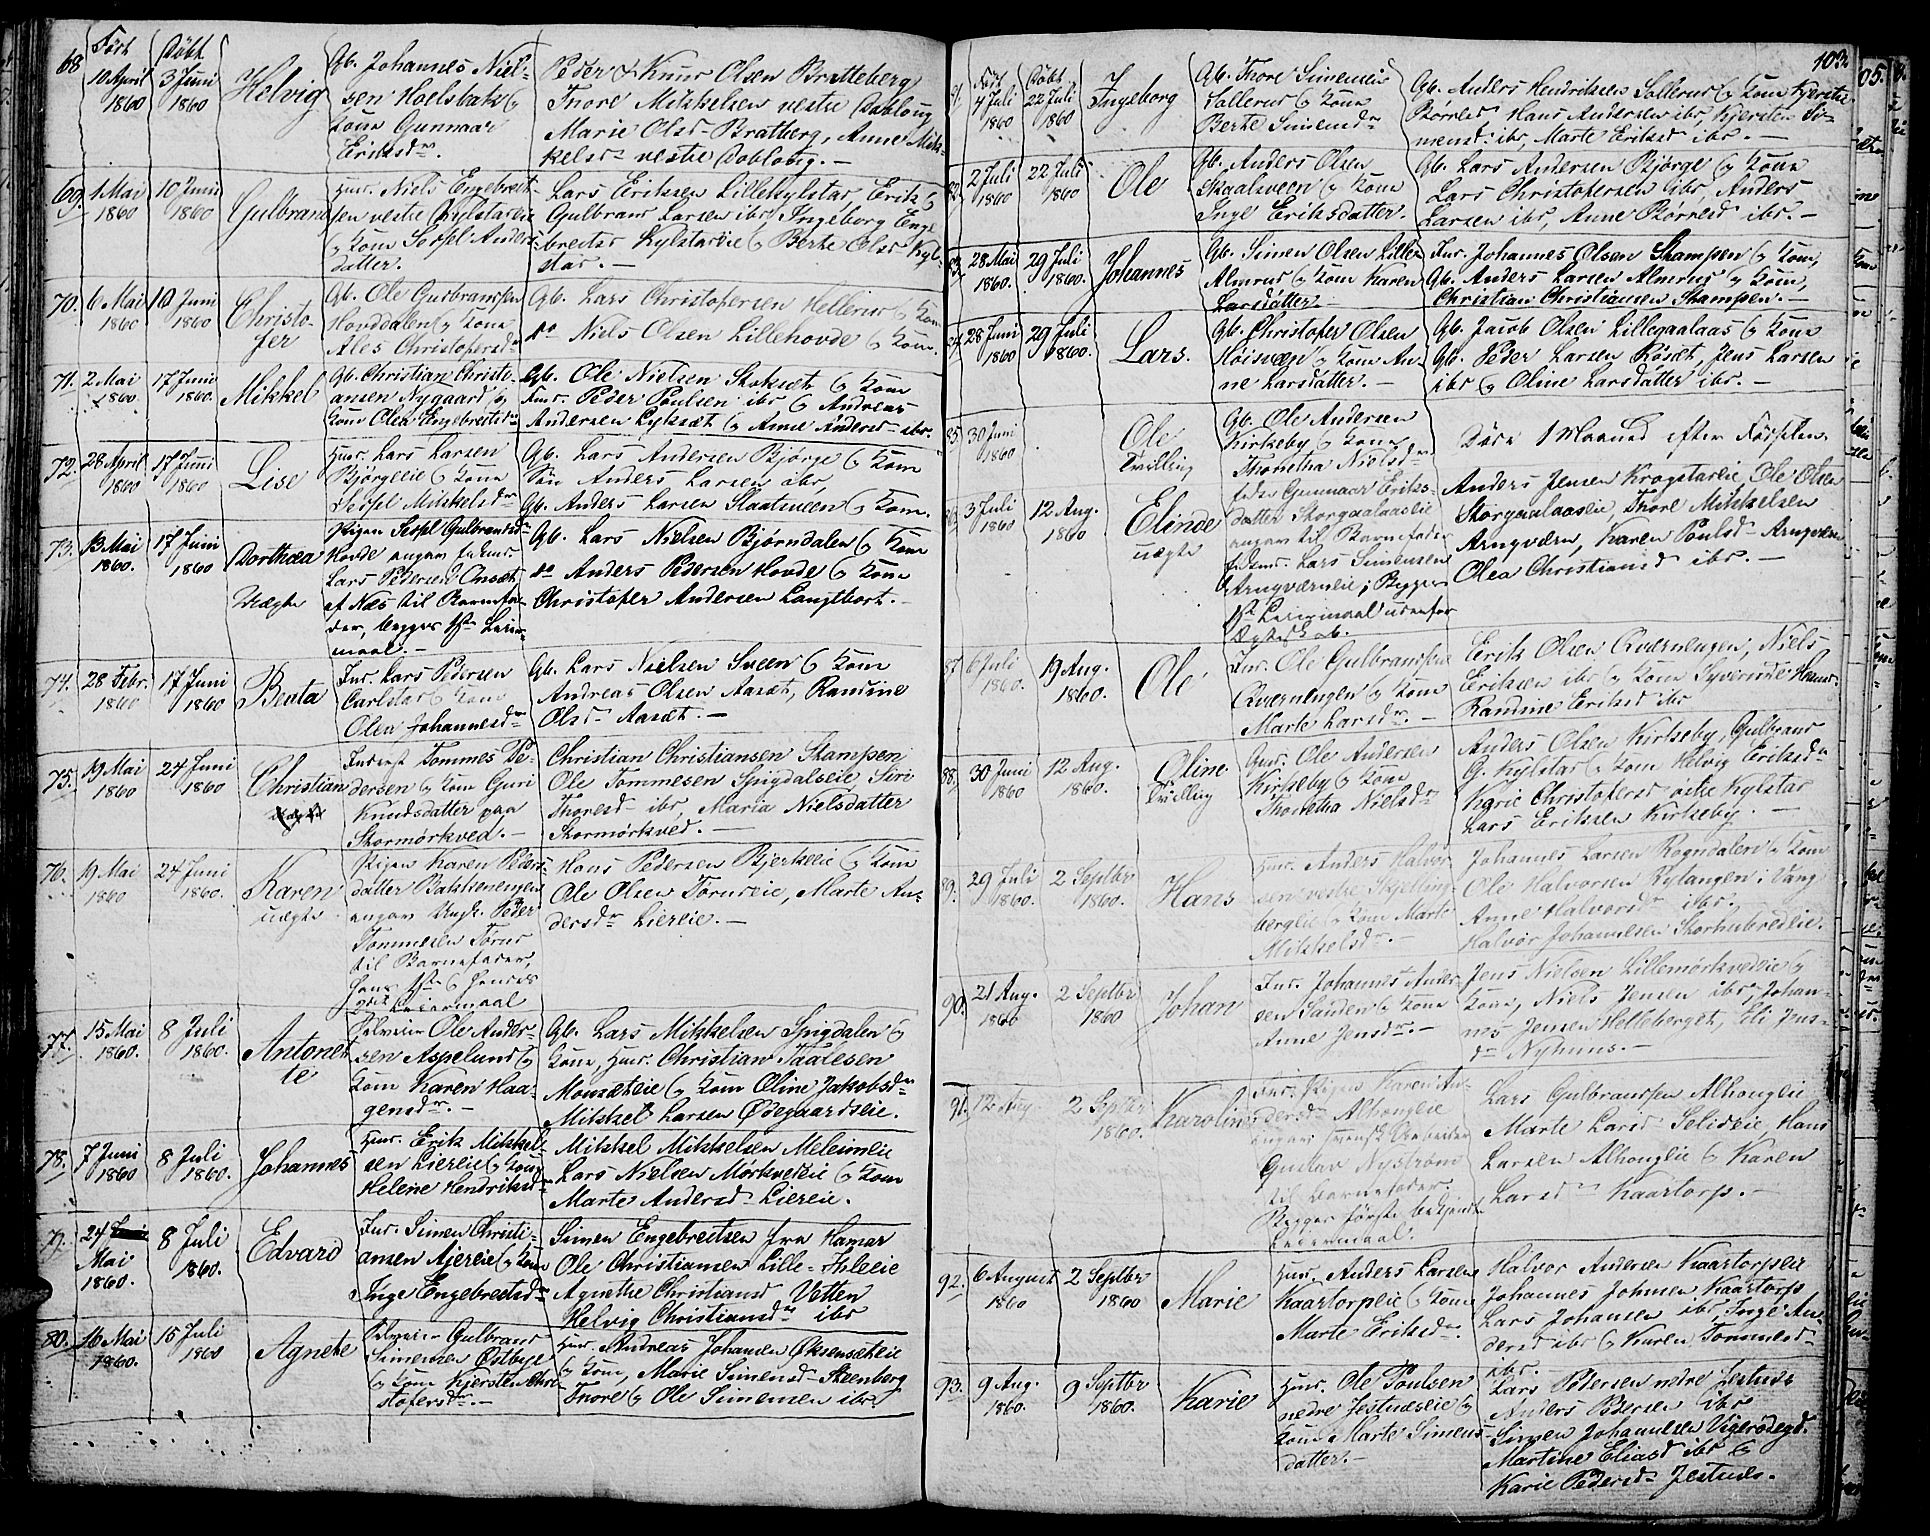 68 Født Døbt
10 April 1860 3 Juni 1860 Helvig
Gb. Johannes Niel-
sen Hoelsbak og
Kone Gunnaar
Eriksdr.
Peder & Knud Olsen Bratteberg
Thore Mikkelsen vestre Dobloug
Marie Olsd. Bratberg, Anne Mik-
kelsd. vestre Doblong. —
69. 1 Mai 1860 10 Juni 1860 Gulbrand
Huus. Niels Engebret-
sen vestre Kylstadeie
og Kone Sophl Anders-
datter.
Lars Eriksen Lillekylstad, Erik og
Gulbrand Larsen ibr, Ingeborg Enge-
bretsd Kylstadeie og Berte Olsd Kyl-
stad. —
70. 6 Mai 1860 10 Juni 1860 Christo-
fer
Gb. Ole Gulbrandsen
Hovdedalen og Kone
Ales Christofersdr.
Gb. Lars Christofersen Hellerud og Kone
do Niels Olsen Lillehovde og Kone.
71. 2 Mai 1860. 17 Juni 1860. Mikkel
Gb. Christian Christi-
ansen Nygaard og
Kone Olea Engebretsdr
Gb. Ole Nielsen Skoksæt og Kone
Inds. Peder Poulsen ibr og Andreas
Andersen Lyksæt og Anne Andersd. ibr.
72. 28 April 1860 17 Juni 1860 Lise
Huus. Lars Larsen
Bjørgeeie og Kone
Sophl Mikkelsdr
Gb. Lars Andersen Bjørge og Kone
Søn Anders Larsen ibr,
Gb. Anders Larsen Slaatsveen og Kone.
73. 13 Mai 1860. 17 Juni 1860 Dorthea
Uægte
Pigen Sophl Gulbrandsdr
Hovde angav
Lars Pedersen Onsæt
af Næs til Barnefa-
der, begges 1ste Leier-
maal. —
Gb. Lars Nielsen Bjørndalen og Kone
do Anders Pedersen Hovde og Kone
Christofer Andersen Langtbort. —
74. 28 Febr. 1860 17 Juni 1860 Beata
Inds. Lars Pedersen
Carlstad og Kone
Olea Johannesdr
Gb. Lars Nielsen Sveen og Kone
Andreas Olsen Aasæt, Randine
Olsd. Aasæt. —
75. 19 Mai 1860 24 Juni 1860 Christian
Inderst Tommes Pe-
dersen og Kone Guri
Knudsdatter paa
Skormørkved. —
Christian Christiansen Stampen,
Ole Tommesen Spigdalseie, Siri
Thoresd ibr, Maria Nielsdatter
Skormørkved. —
76. 19 Mai 1860 24 Juni 1860 Karen
uægte
Pigen Karen Peders-
datter Bakkenengen
angav Ungk. Peder
Tommesen Tørud
til Barnefader,
hans 1ste og hendes
Leiermaal
Hans Pedersen Bjerkeeie og Kone
Ole Olsen Tørudeie, Marte An-
dersdr Liereie. —
77. 15 Mai 1860. 8 Juli 1860. Antonet-
te
Selveier Ole Ander-
sen Aspelund og
Kone Karen Haa-
gensdr. —
Gb. Lars Mikkelsen Spigdalen og
Kone, Huus. Christian Taalesen
Monsæteie og Kone Oline Jakobsdr
Mikkel Larsen Ødegaardseie.
78. 7 Juni 1860 8 Juli 1860. Johannes
Huus. Erik Mikkel-
sen Liereie og Kone
Helene Hendriksdr
Mikkel Mikkelsen Meleimeie
Lars Nielsen Mørkvedeie og Kone
Marte Andersd. Liereie.
79. 24 Mai 1860. 8 Juli 1860. Edvard
Inds. Simen Christi-
ansen Ajereie og Kone
Inge Engebretsdr
Simen Engebretsen fra Hamar
Ole Christiansen Lille-
Agnethe Christiansd Vetten
Helvig Christiansdr ibr
80. 16 Mai 1860. 15 Juli 1860 Agnete
Selveier Gulbrand
Simensen Østbye
og Kone Kjersten Chri-
stofersdr. —
Huus. Andreas Johansen Øksensæteie
og Kone, Marie Simensd. Steenberg
Thore og Ole Simensen ibr
103.
81. Født 4 Juli 1860 Døbt 22 Juli 1860 Ingeborg
Gb. Thore Simensen
Sollerud og Kone
Berte Simensdr
Gb. Anders Hendriksen Sollerud og Kone Kjersti
Børresd, Hans Andersen ibr, Kjersten Si-
mensd. ibr, Marte Eriksd ibr. —
82. 2 Juli 1860 22 Juli 1860 Ole
Gb. Anders Olsen
Skaalsveen og Kone
Inge Eriksdatter.
Gb. Lars Andersen Bjørge og Kone
Lars Christofersen ibr, Anders
Larsen ibr, Anne Børresd ibr. —
83. 28 Mai 1860. 29 Juli 1860. Johannes
Gb. Simen Olsen Lille
Almrud og Kone Karen
Larsdatter —
Inds. Johannes Olsen Stampen og Kone,
Gb. Anders Larsen Almrud og Kone,
Christian Christiansen Stampen. —
84. 28 Juni 1860 29 Juli 1860. Lars.
Gb. Christofer Olsen
Høisveen og Kone An-
ne Larsdatter. —
Gb. Jacob Olsen Lillegaalaas og Kone
Gb. Peder Larsen Røsæt, Jens Larsen
ibr og Oline Larsdatter ibr. —
85. 30 Juni 1860 Ole
Tvilling
Gb. Ole Andersen
Kirkeby og Kone
Thonetha Nielsdr
Døde 1 Maaned efter Fødselen.
86. 3 Juli 1860 12 Aug. 1860 Elinde
uægte
Gunnaar Eriks-
datter Storgaalaaseie
angav til Barnefader
Lars Simensen
Arngværneie; Begges
1ste Leiermaal udenfor
Ægteskab.
Anders Jensen Krogstadeie, Ole Olsen
Storgaalaaseie, Thore Mikkelsen
Arngværn, Karen Poulsd. Arngværn
Olea Christiansd ibr. —
87. 6 Juli 1860. 19 Aug. 1860. Ole
Inds. Ole Gulbrandsen
Qværnengen og Kone
Marte Larsdr. —
Erik Olsen Qværnengen, Niels
Eriksen ibr og Kone Syverinde Hansd.
Randine Eriksd ibr
88. 30 Juni 1860 12 Aug. 1860. Oline
Tvilling
Gaar. Ole Andersen
Kirkeby og Kone
Thonetha Nielsdr
Anders Olsen Kirkeby, Gulbrand
G. Kylstad og Kone Helvig Eriksdr
Karie Christofersd østre Kylstad
Lars Eriksen Kirkeby. —
89. 29 Juli 1860. 2 Septbr 1860. Hans
Huus. Anders Halvor-
sen vestre Skjelling-
bergeie og Kone Marte
Mikkelsdr. —
Johannes Larsen Rogndalen og Kone
Ole Halvorsen Rylangen i Vang
Anne Halvorsdr ibr.
Halvor Johannesen Skorhubredeie.
90. 21 Aug. 1860 2 Septbr 1860 Johan
Inds. Johannes Ander-
sen Sanden og Kone
Anne Jensdr. —
Jens Nielsen Lillemørkvedeie og
Kone, Niels Jensen ibr, Johan-
nes Jensen Helleberget, Eli Jens-
dr Nyhuus. —
91. 12 Aug 2 Septbr 1860. Karoline
Pigen Karen An-
dersdr Alhougeie
angav svensk Arbeider
Gustav Nystrøm
til Barnefader.
Begges første bekjendte
Leiermaal.
Lars Gulbrandsen Alhougeie
Marte Larsd Selideie, Hans
Larsen Alhougeie og Karen
Larsd Kaartorp. —
92. 6 August 1860 2 Septbr 1860 Marie
Huus. Anders Larsen
Kaartorpeie og Kone
Marte Eriksdr.
Halvor Andersen Kaartorpeie
Johannes Johnsen Kaartorp
Lars Johansen ibr, Inge An-
dersd ibr og Karen Tommesd
ibr.
93. 9 Aug. 1860. 9 Septbr 1860. Karie
Huus. Ole Poulsen
nedre Jestnæseie og
Kone Marte Simens-
datter. —
Lars Pedersen nedre Jestnæs
Anders Pedersen ibr
Simen Johannesen Vigerødegd.
Martine Eliasd ibr og
Karie Pedersd Jestnæs.